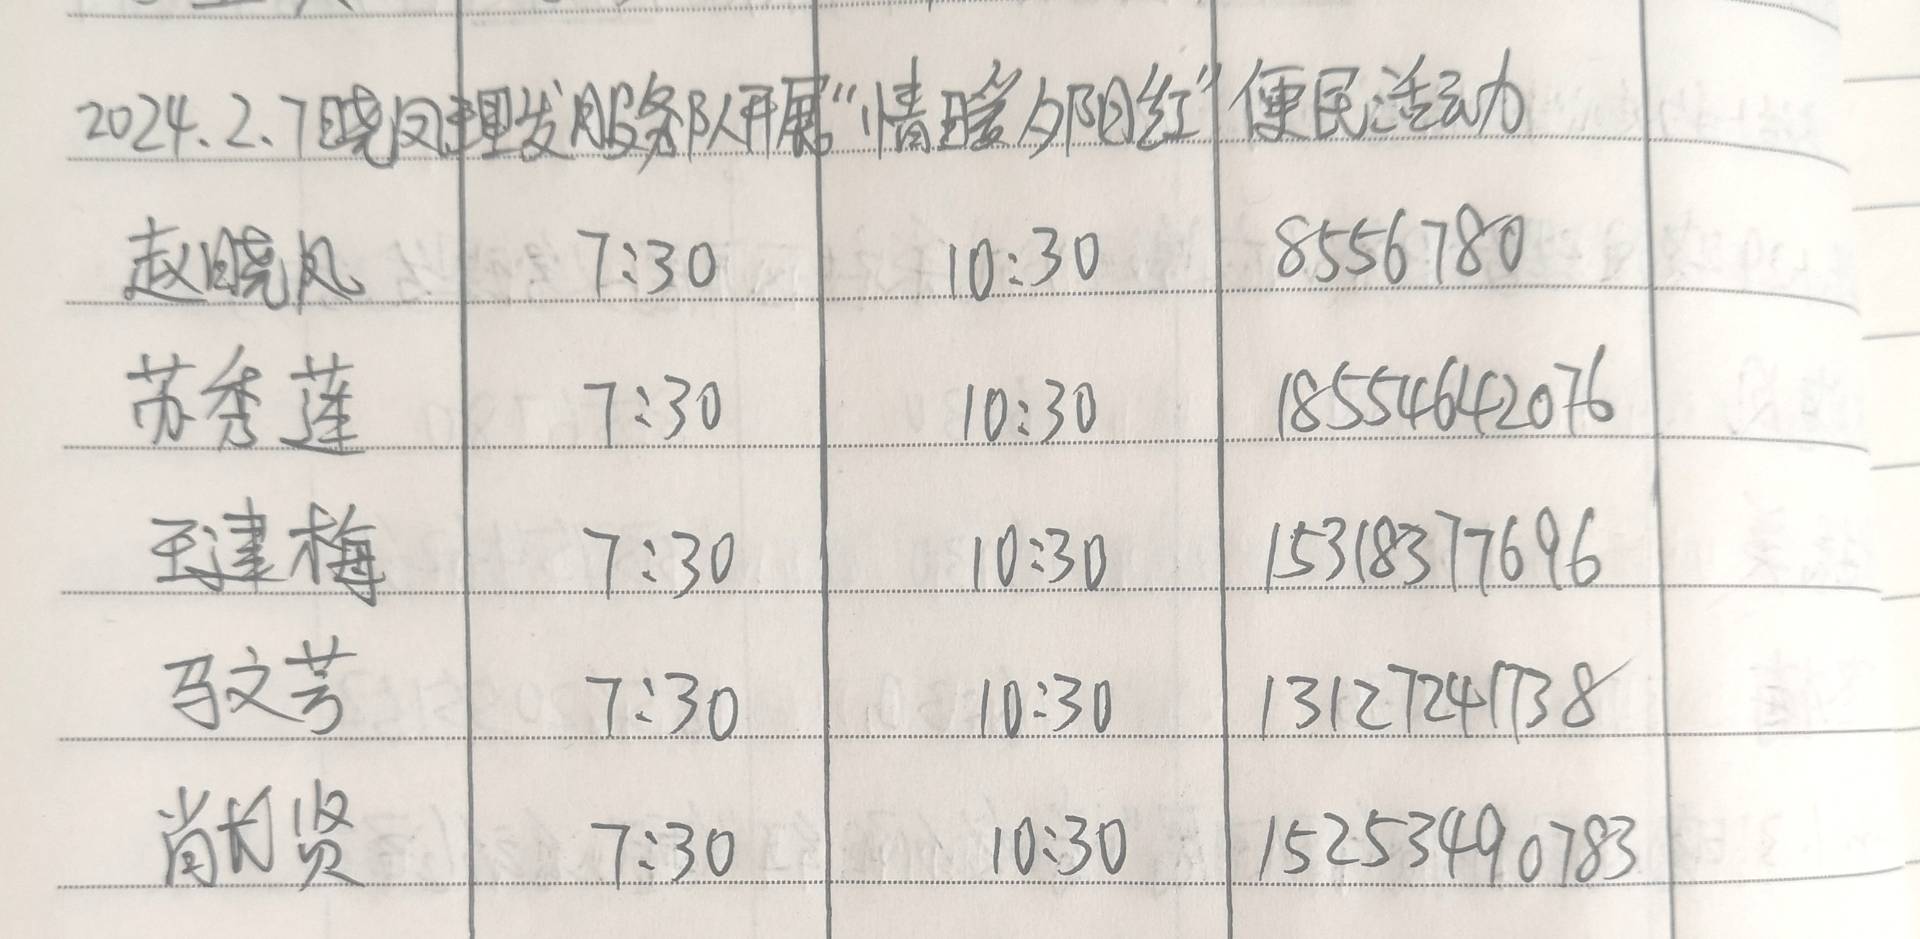 2024.2.7晓风理发服务队开展“情暖夕阳红”便民活动
赵晓风 7:30 10:30 8556780
苏秀莲 7:30 10:30 18554642076
王津梅 7:30 10:30 15318377696
马文芳 7:30 10:30 13127241738
肖 贤 7:30 10:30 15253490783